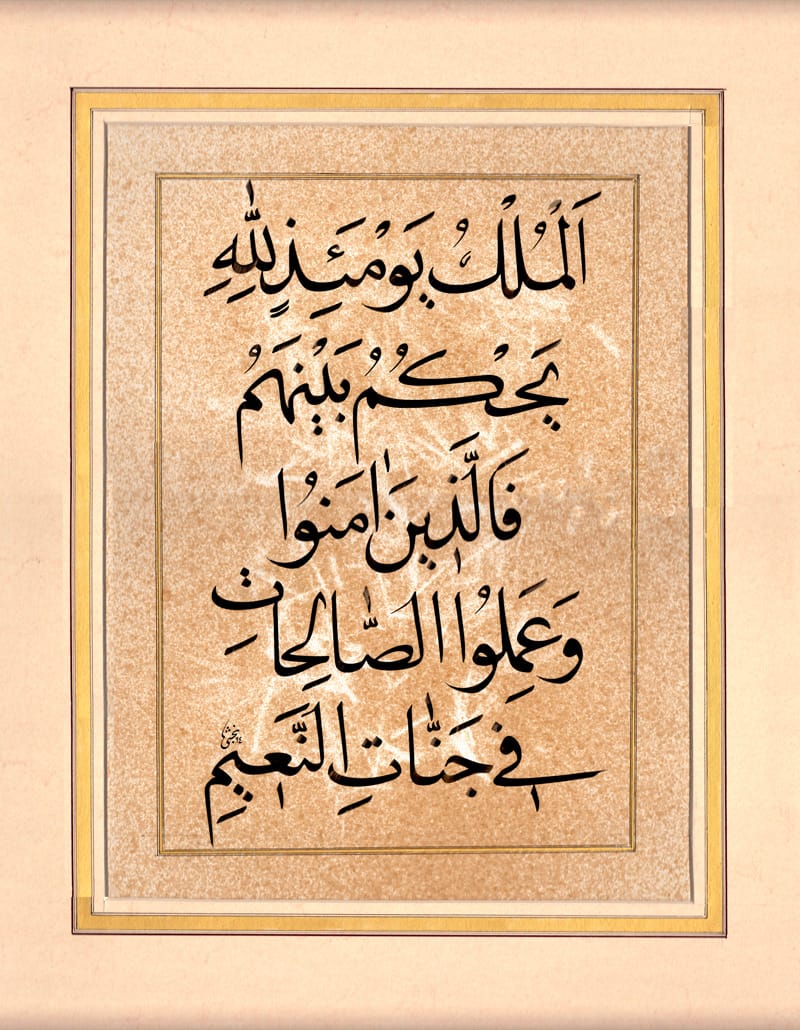 اَلْمُلْكُ يَوْمَئِذٍ لِلّٰهِ
يَحْكُمُ بَيْنَهُمْ
فَالَّذِينَ اٰمَنُوا
وَعَمِلُوا الصَّالِحَاتِ
فِي جَنَّاتِ النَّعِيمِ